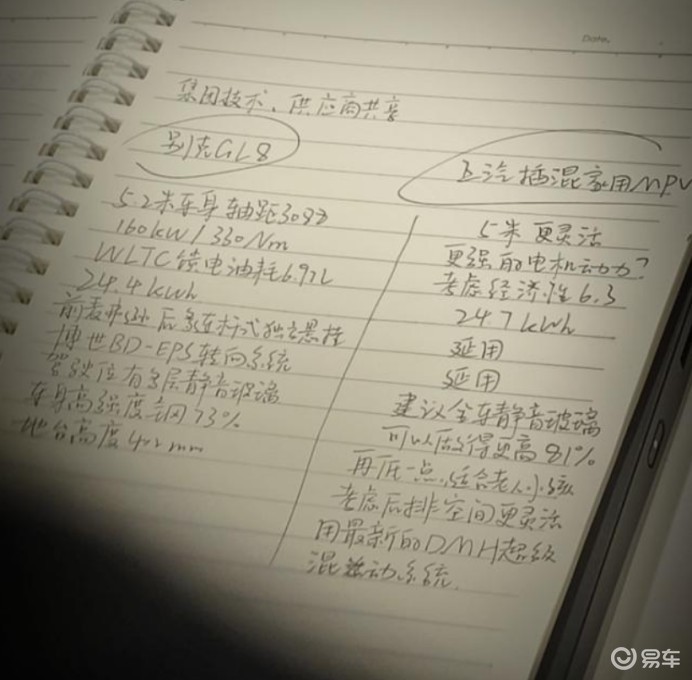 Date.
集团技术、供应商共享
别克GL8
上汽插混家用MPV
5.2米车身 轴距30
160kW/330Nm
WLTC馈电油耗6.97L
24.4kWh
前麦弗逊 后多连杆式独立悬挂
博世BD-EPS转向系统
驾驶位有多层静音玻璃
车身高强度钢73%
地台高度4 mm
5米 更灵活
更强的电机动力?
考虑经济性6.3
24.7kWh
延用
延用
建议全车静音玻璃
可以做得更高81%
再低一点,适合老人小孩
考虑后排空间更灵活
用最新的DMH超级
混动系统
易车